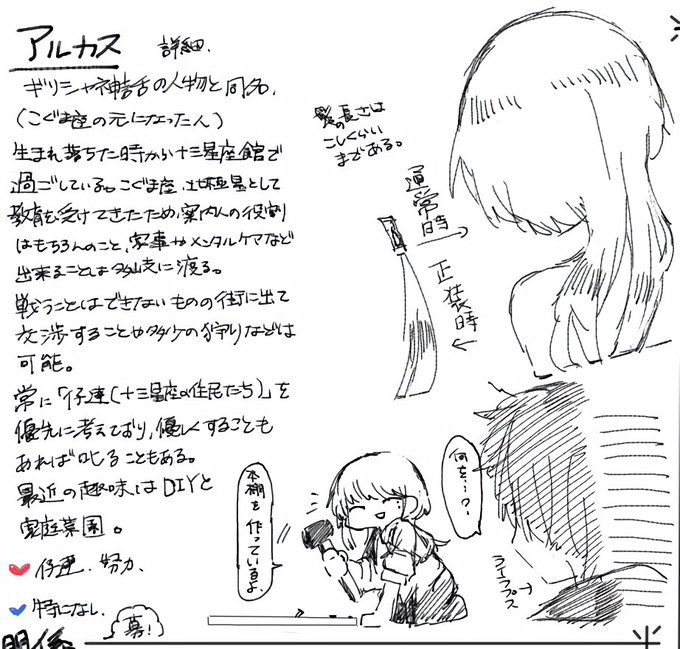 アルカス 詳細.
ギリシャ神話の人物と同名.
(こぐま座の元になった人)
生まれ落ちた時から十三星座館で
過ごしている。こぐま座、北極星として
教育を受けてきたため、案内人の役割
はもちろんのこと、家事やメンタルケアなど
出来ることは多岐に渡る。
戦うことはできないものの街に出て
交渉することや多少の狩りなどは
可能。
常に「仔達(十三星座の住民たち)」を
優先に考えており、優しくすることも
あれば叱ることもある。
最近の趣味はDIYと
家庭菜園。
仔達. 努力.
特になし.
募!
関係
髪の長さは
こしくらい
まである。
通常時
正装時
本棚を作っているよ
何を…?